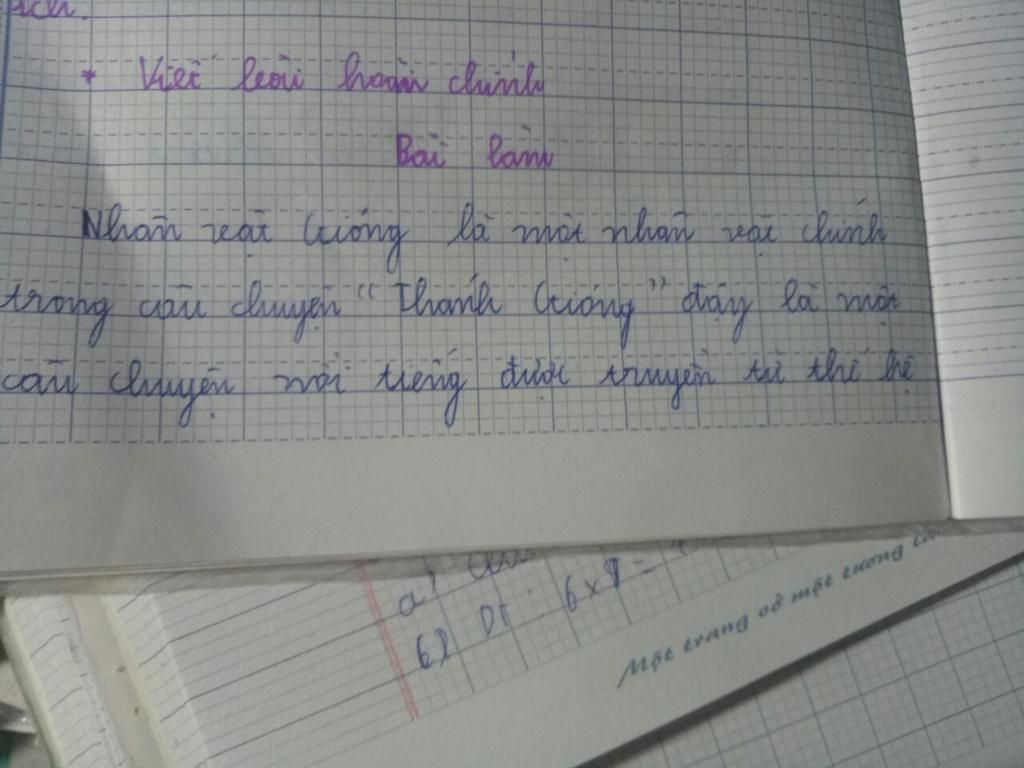 ích.
* Viết bài hoàn chỉnh
Bài làm
Nhân vật Gióng là một nhân vật chính
trong câu chuyện "Thánh Gióng" đây là một
câu chuyện nổi tiếng được truyền từ thế hệ
a)
b)
6x9=
Một trang vở một tương